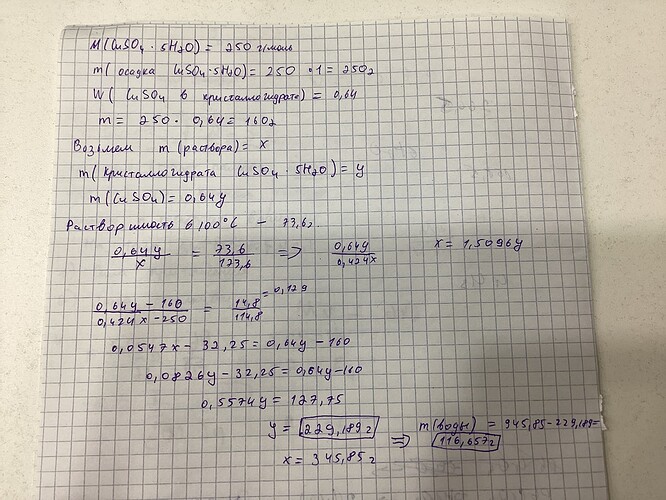 M(CuSO4 · 5H2O) = 250 г/моль
m( осадка CuSO4·5H2O) = 250 · 1 = 250г
W( CuSO4 в кристаллогидрате) = 0,64
m = 250 · 0,64 = 160г
Возьмем m (раствора) = x
m( кристаллогидрата CuSO4 · 5H2O) = y
m(CuSO4) = 0,64y
Растворимость б 100°C – 73,6г
0,64y / x = 73,6 / 173,6 => 0,64y / 0,424x x = 1,5096y
0,64y – 160 / 0,424x – 250 = 14,8 / 114,8 = 0,129
0,0547x – 32,25 = 0,64y – 160
0,0826y – 32,25 = 0,64y – 160
0,5574y = 127,75
y = 229,189 г => m(воды) = 945,85 – 229,189 =
116,657г
x = 345,85 г